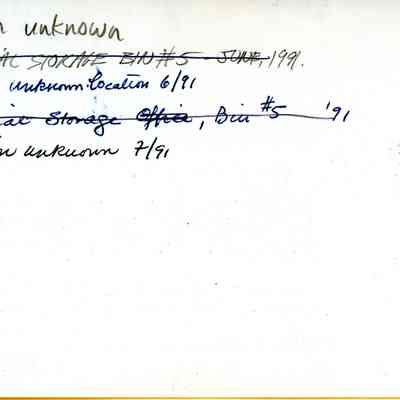 n unknown
AL STORAGE BIN #5 - JUNE, 1991.
unknown location 6/91
ial Storage Office, Bin #5 '91
n unknown 7/91